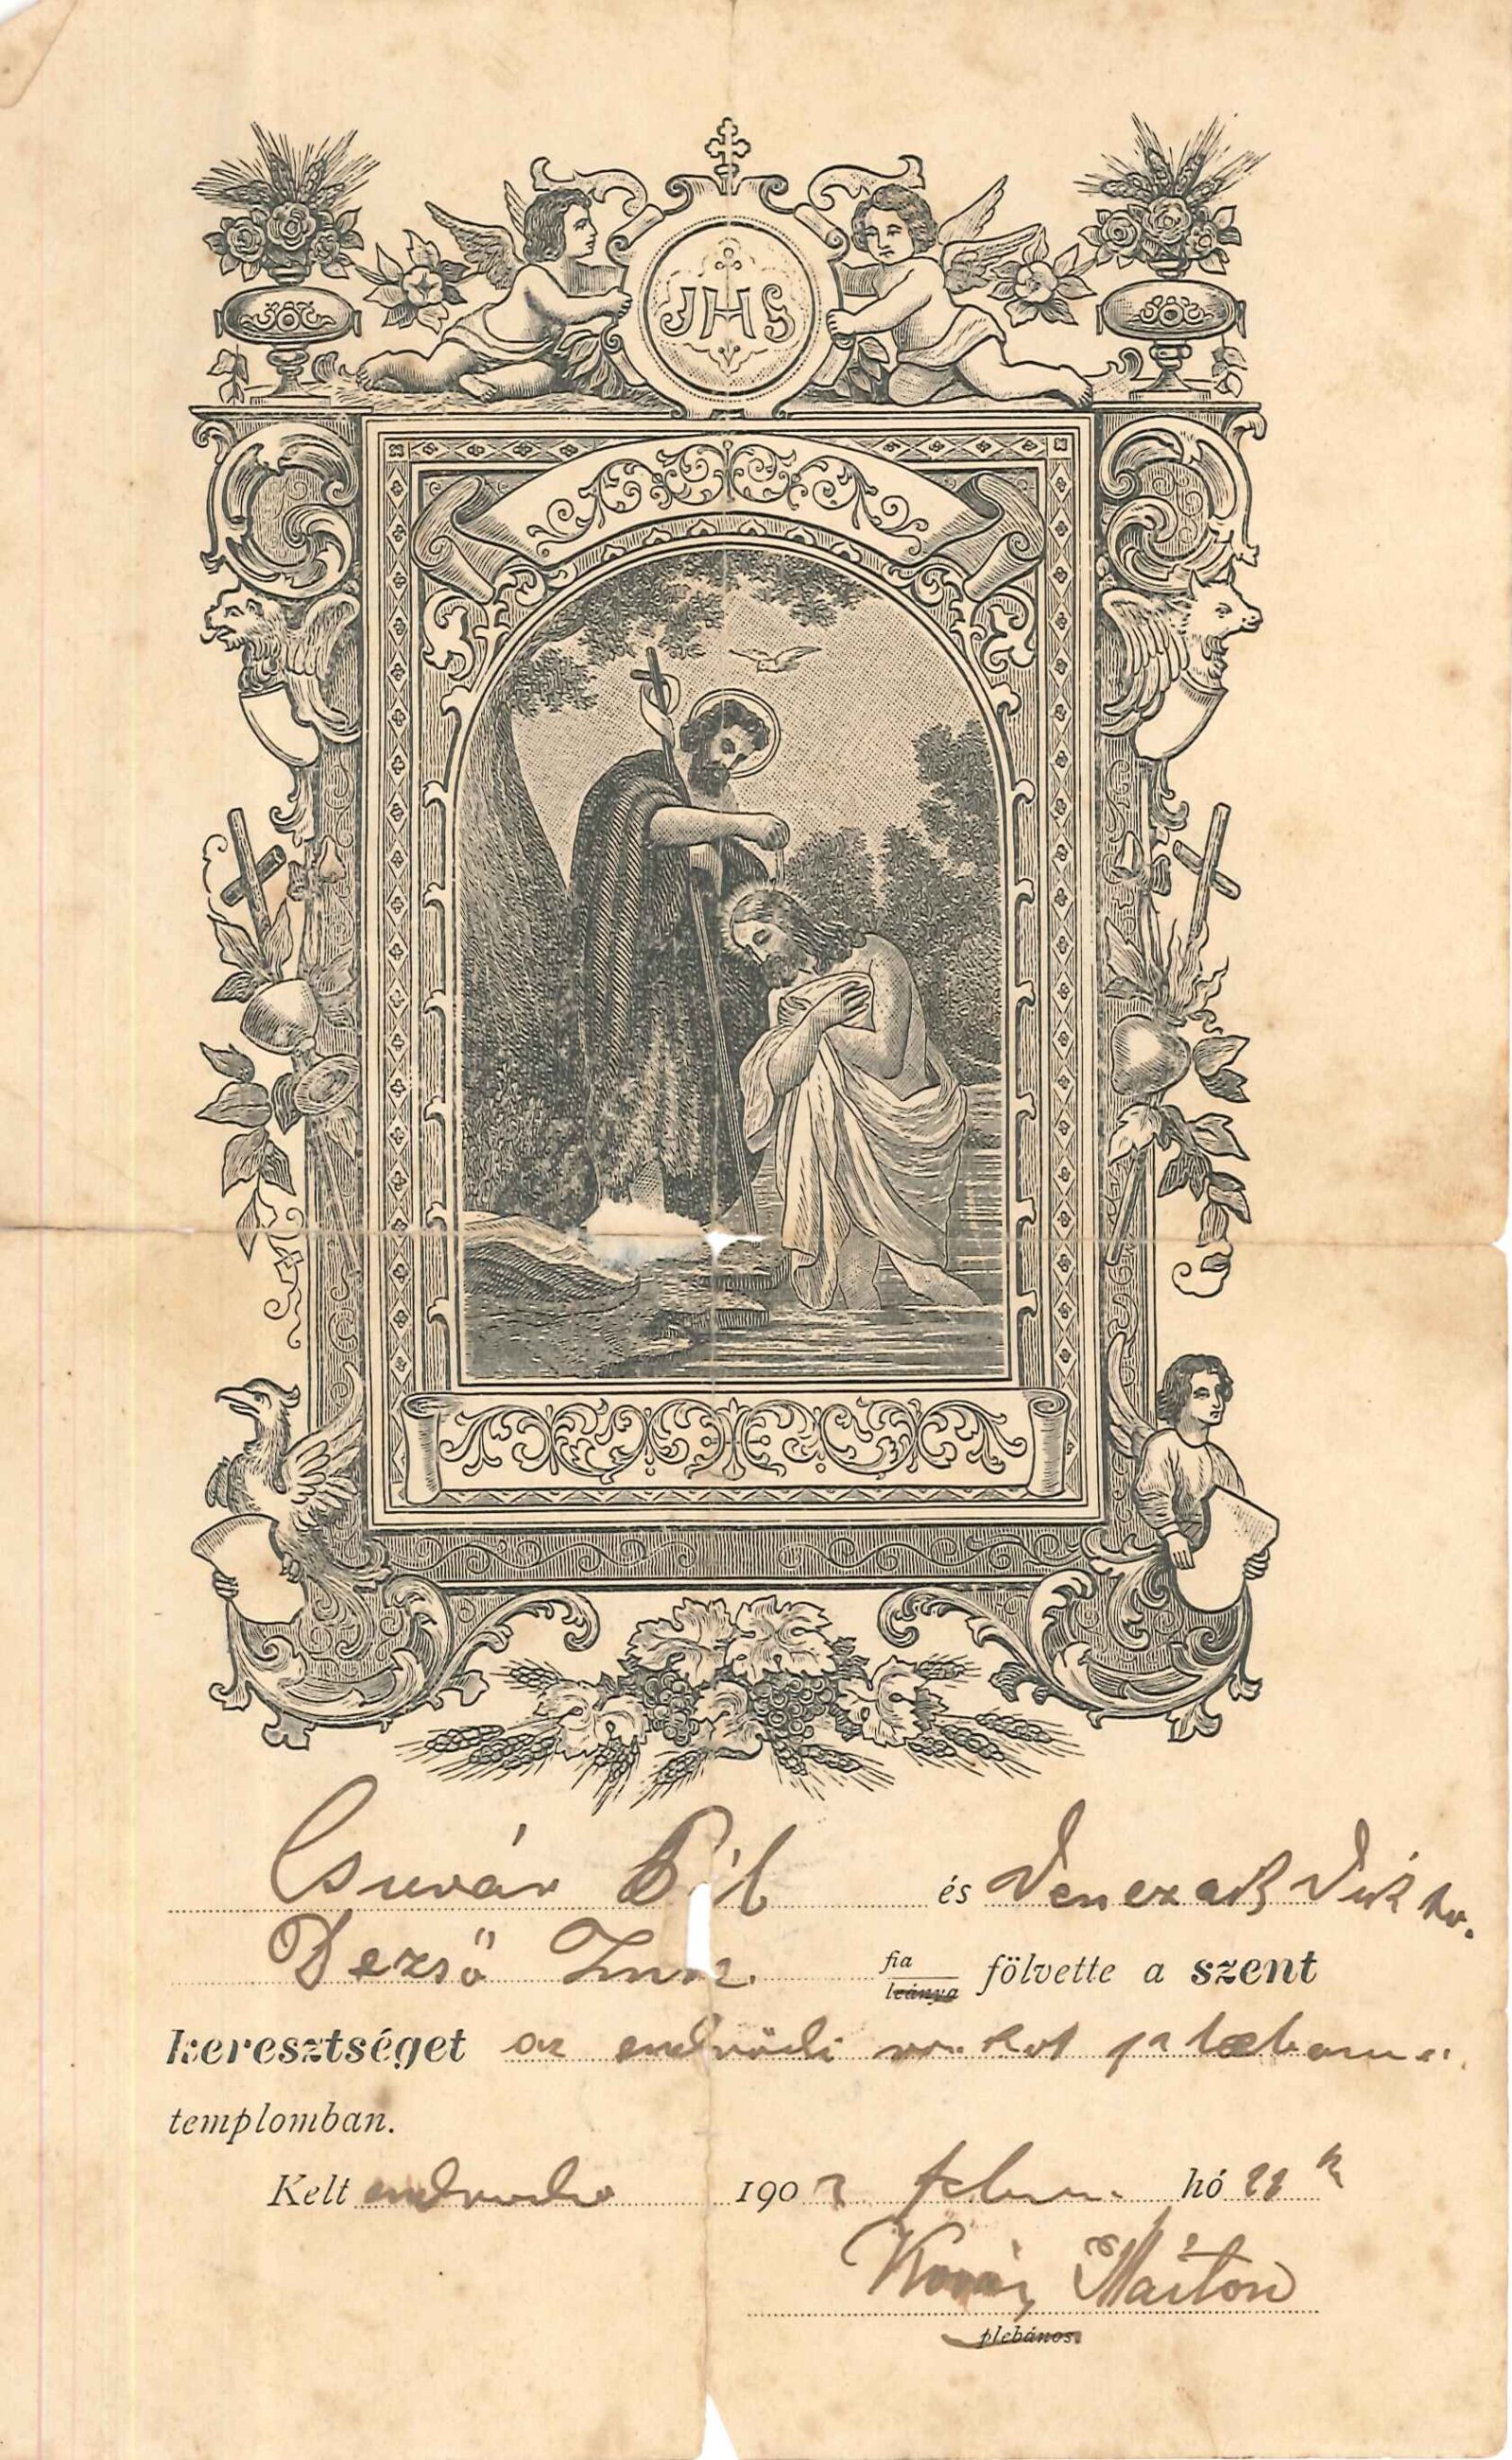 JHS
Csuvár Pál és Venczak Vikt.
Dezső Imre fia leánya fölvette a szent
keresztséget az endrődi róm. kat plebania
templomban.
Kelt 190 febru. hó 28
Kovács Márton
plebános.